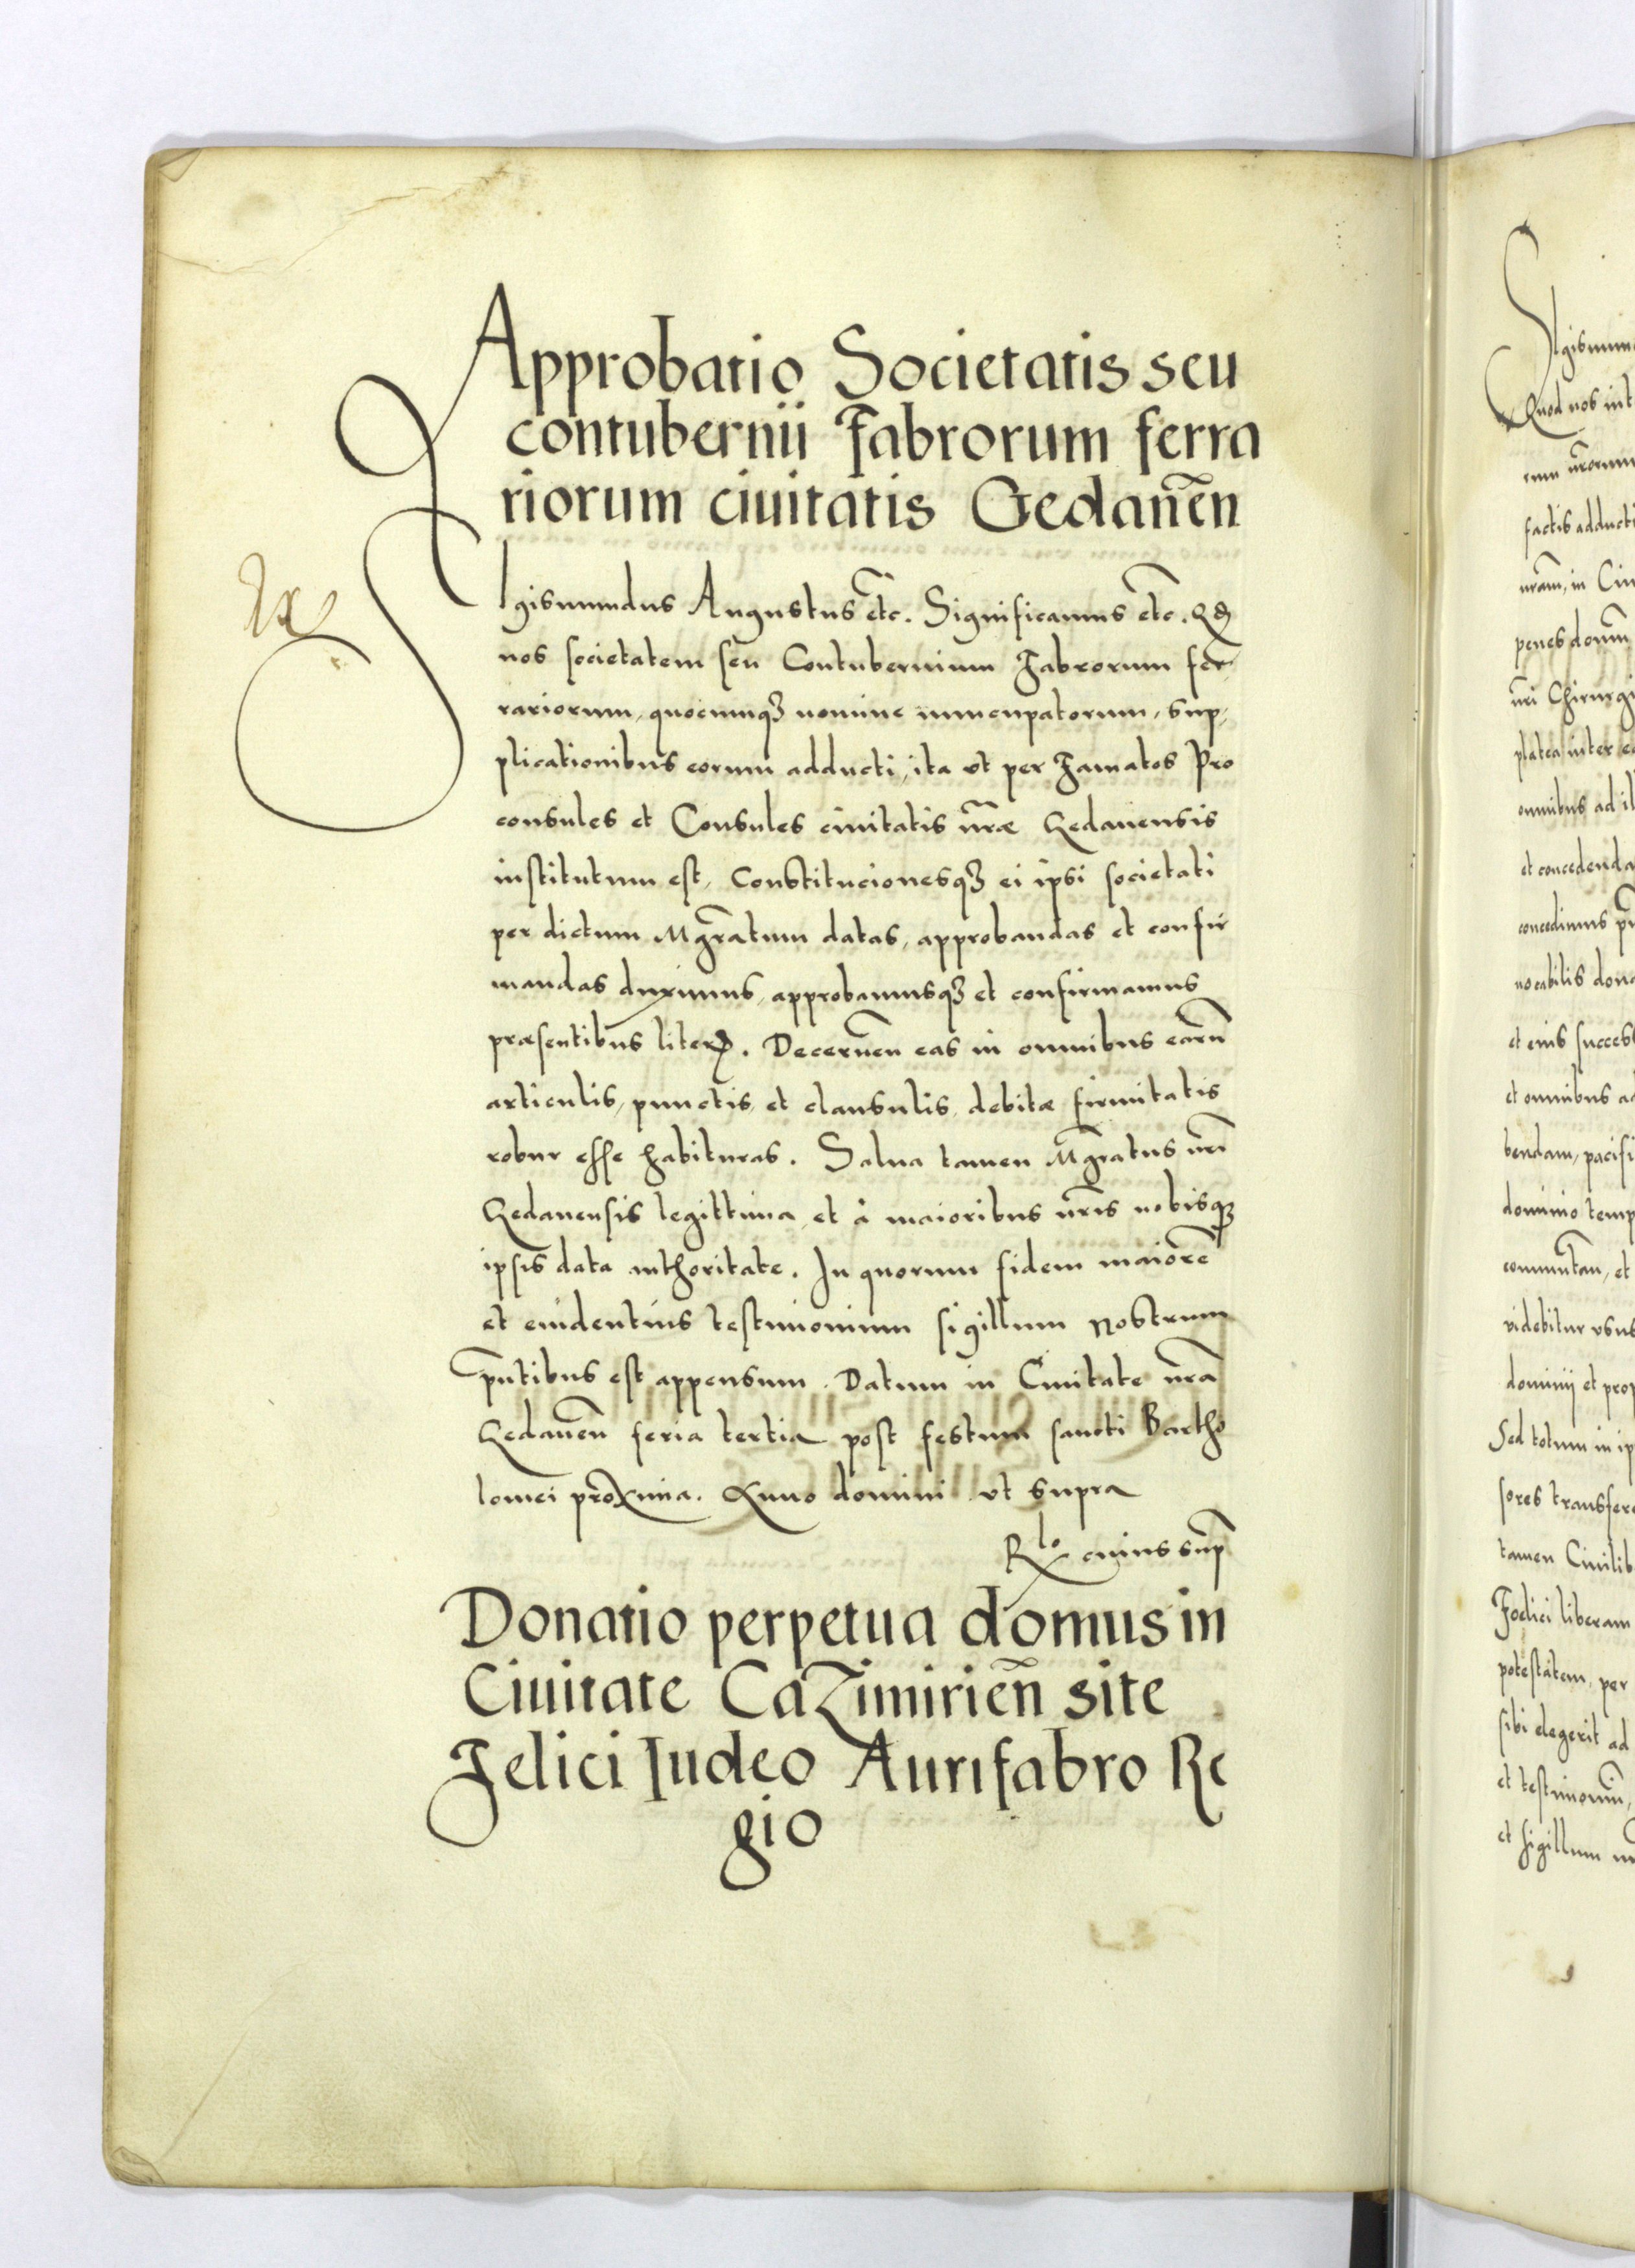 Approbatio Societatis seu
contubernii Fabrorum ferra
riorum ciuitatis Gedanen̄
Sigismundus Augustus etc̄. Significamus etc̄. Qđ
nos societatem seu Contubernium Fabrorum fer-
rariorum, quocumqꝫ nomine nuncupatorum, sup-
plicationibus eorum adducti, ita vt per Famatos Pro
consules et Consules ciuitatis nr̄ae Gedanensis
institutum est, Constitucionesqꝫ ei ipsi societati
per dictum Mgr̄atum datas, approbandas et confir
mandas duximus, approbamusqꝫ et confirmamus
praesentibus literꝭ. Decernen̄ eas in omnibus earū
articulis, punctis, et clausulis, debitae firmitatis
robur esse habituras. Salua tamen Mgr̄atus nr̄i
Gedanensis legittima, et à maioribus nr̄is nobisqꝫ
ipsis data authoritate. In quorum fidem maiorē
et euidentius testimonium sigillum nostrum
pn̄tibus est appensum. Datum in Ciuitate nr̄a
Gedanen̄ feria tertia post festum sancti Bartho
lomei proxima. Anno domini vt supra
R̄lo cuius sup̄
Donatio perpetua domus in
Ciuitate Cazimirien̄ site
Felici Iudeo Aurifabro Re
gio
Quod nos int
factis adducti
nr̄am, in Ciu
penes domū
nr̄i Chirurgi
platea inter
omnibus ad il
et concedenda
concedimus
uocabilis dona
et eius success
et omnibus ad
bendam, pacifi
dominio temp
commutan̄, et
videbitur vsus
dominij et prop
Sed totum in ip
sores transfere
tamen Ciuilib
Foelici liberam
potestatem, per
sibi elegerit ad
et testimoniū,
et sigillum